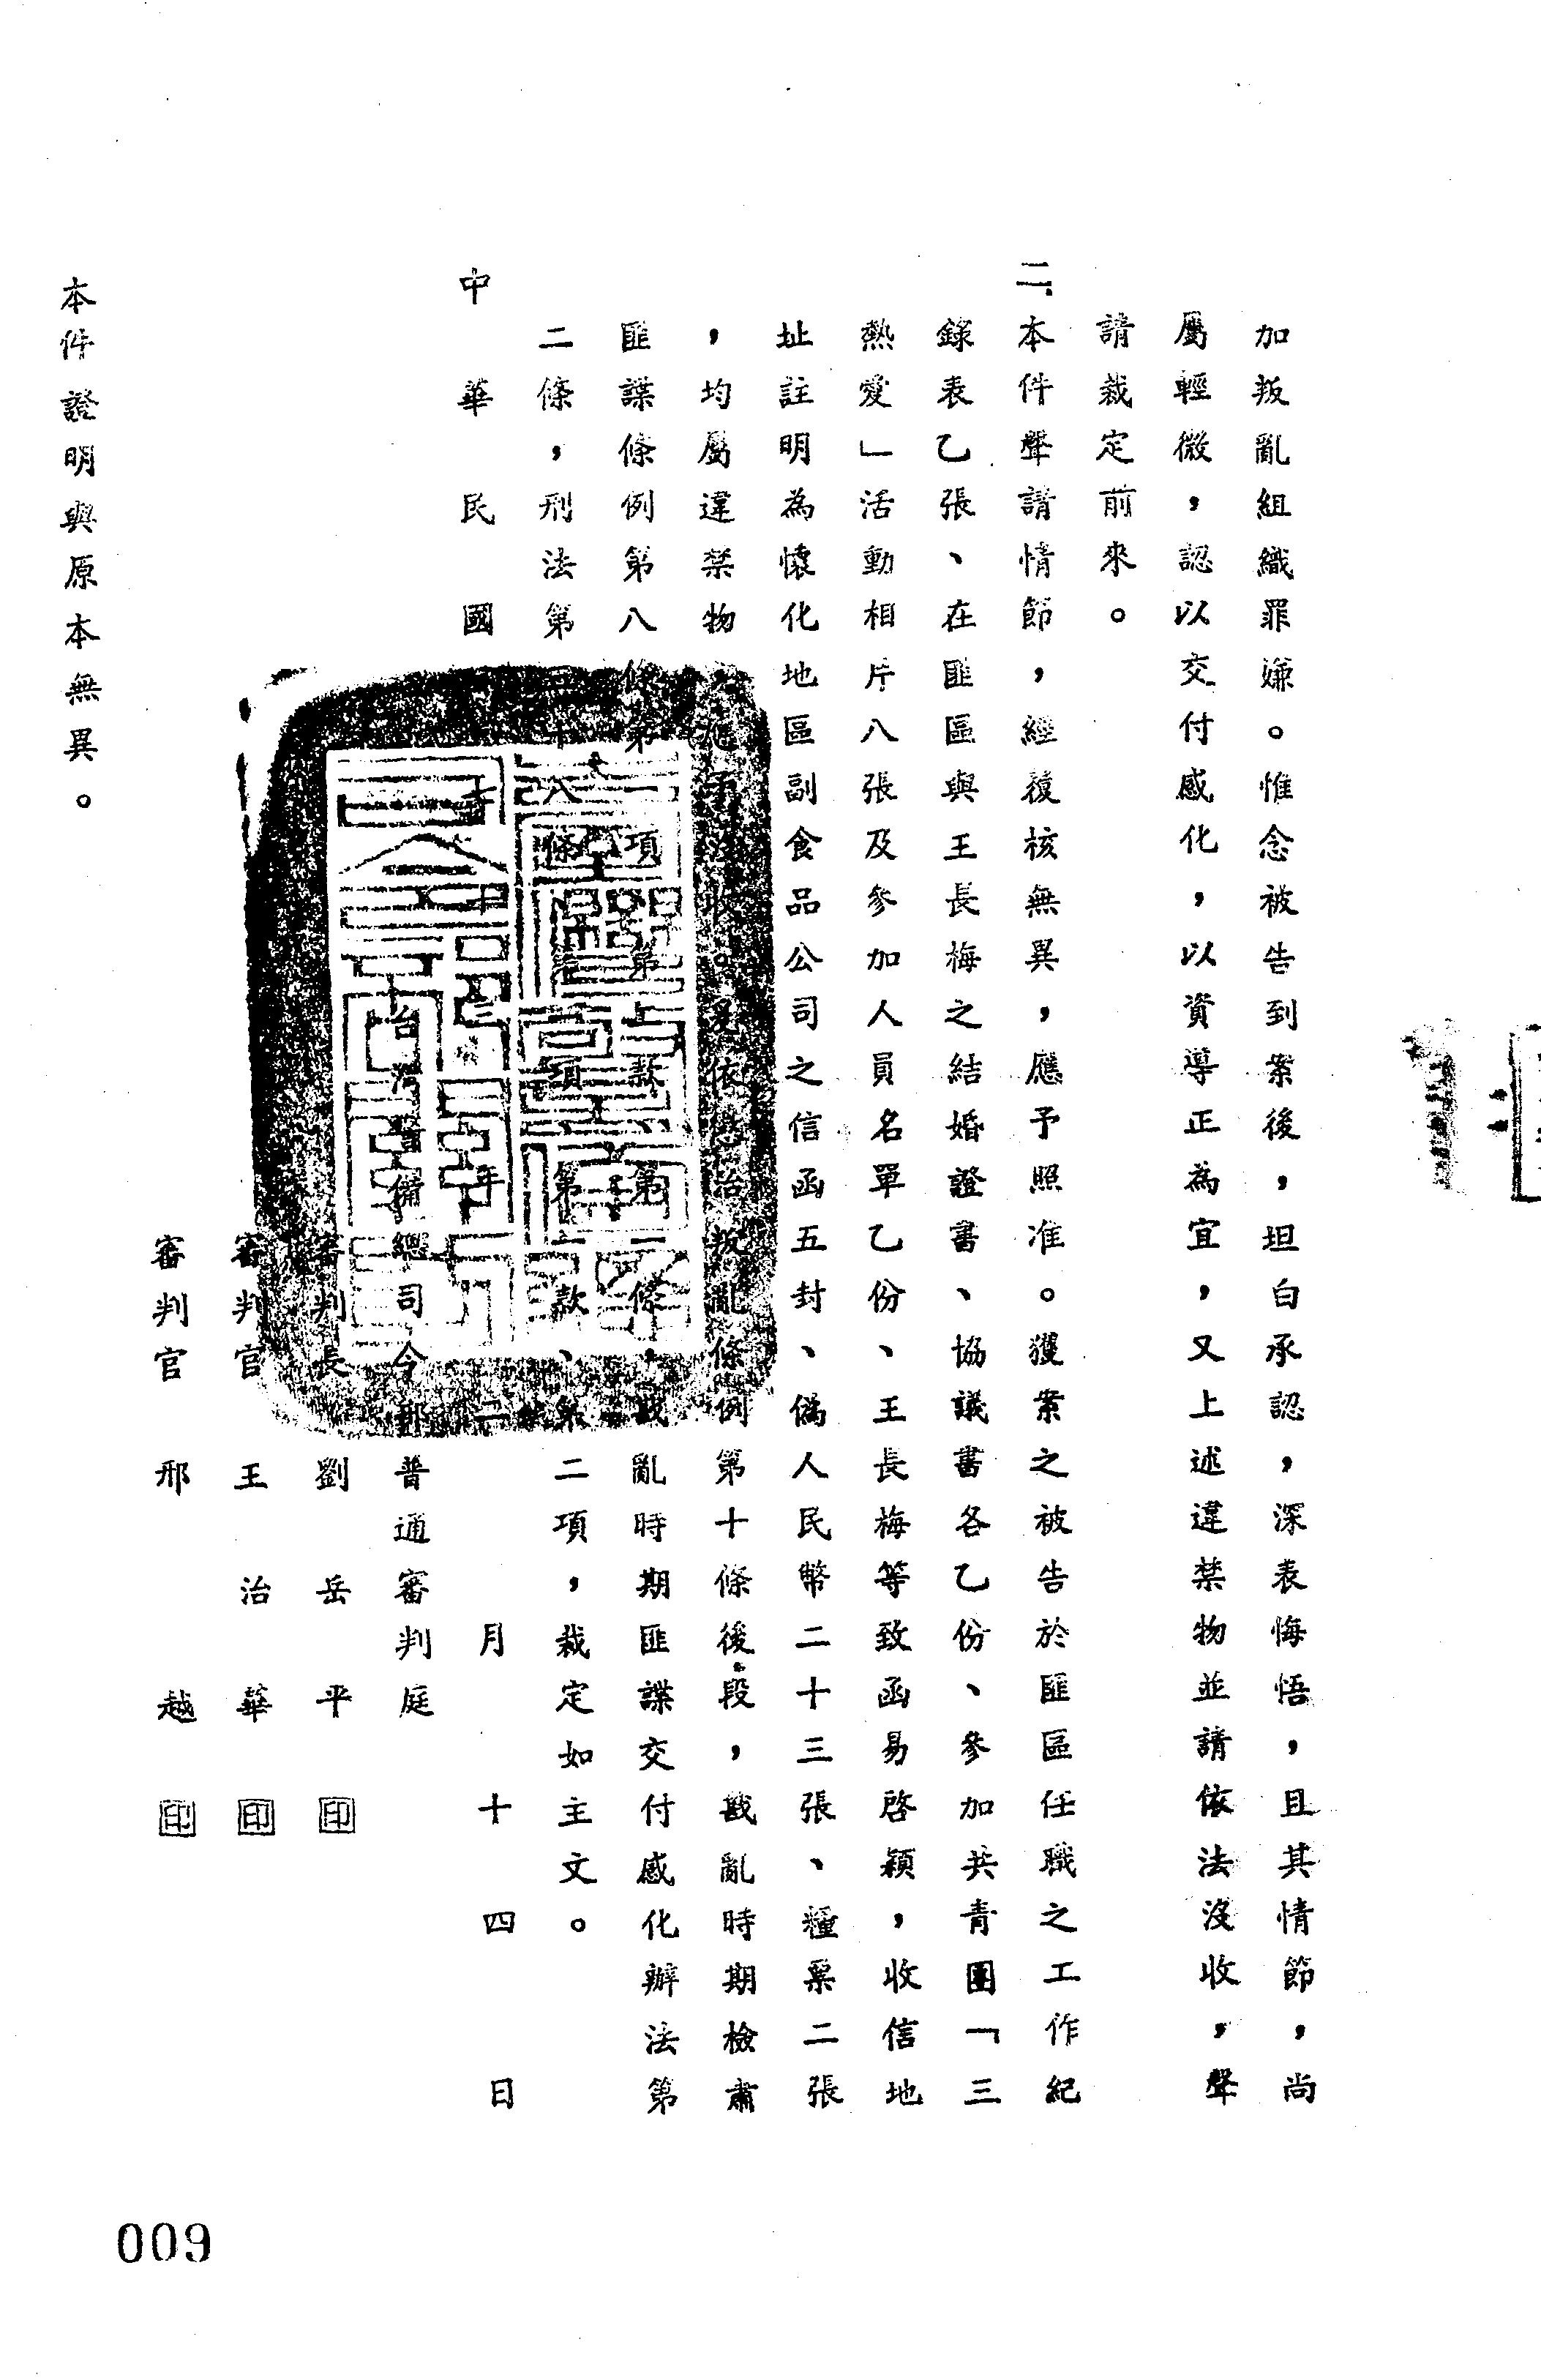 加叛亂組織罪嫌。惟念被告到案後，坦白承認，深表悔悟，且其情節，尚
屬輕微，認以交付感化，以資導正為宜，又上述違禁物並請依法沒收，聲
請裁定前來。
二、本件聲請情節，經復核無異，應予照准。獲案之被告於匪區任職之工作紀
錄表乙張、在匪區與王長梅之結婚證書、協議書各乙份、參加共青團「三
熱愛」活動相片八張及參加人員名單乙份、王長梅等致函易啓穎，收信地
址註明為懷化地區副食品公司之信函五封、偽人民幣二十三張、糧票二張
，均屬違禁物，應予沒收。爰依懲治叛亂條例第十條後段，戡亂時期檢肅
匪諜條例第八條第一項第二款、第二條，戡亂時期匪諜交付感化辦法第
二條，刑法第三十八條第一項第一款、第二項，裁定如主文。
中華民國七十三年二月十四日
台灣警備總司令部普通審判庭
審判長劉岳平印
審判官王治華印
審判官邢越印
本件證明與原本無異。
009